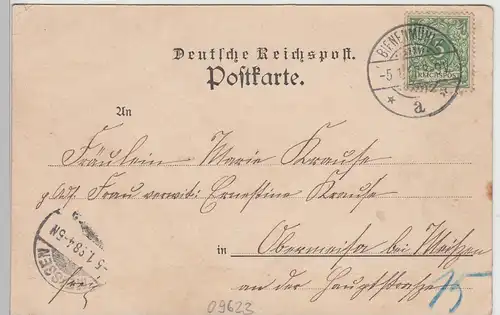 Deutsche Reichspost.
Postkarte.
BIENENMÜHLE
-5.1.
* a *
5
REICHSPOST
An
Fräulein Marie Krause
Frau verwit. Ernestine Krause
in Obermeisa bei Meißen
an der Hauptstraße
MEISSEN
5.1.98.4-5N
frei
15
09623